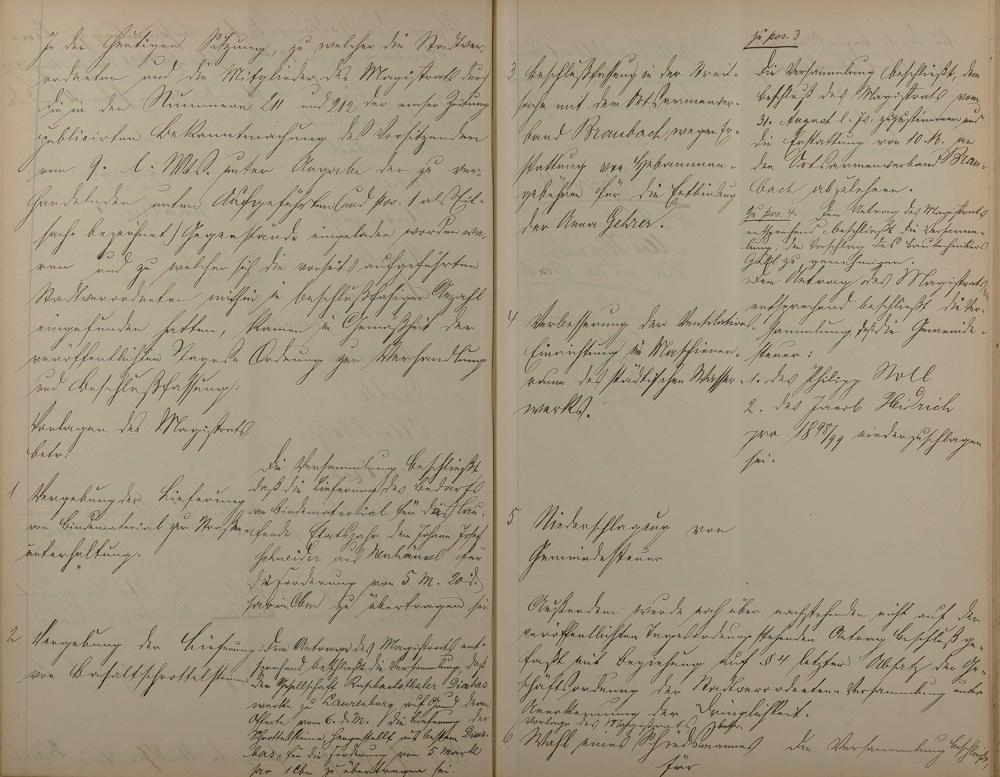 In der heutigen Sitzung, zu welcher die Stadtver-
ordneten und die Mitglieder des Magistrats durch
die in den Nummern 211 und 212 der emser Zeitung
publicirten Bekanntmachung des Vorsitzenden
vom 9. l. Mts. unter Angabe der zu ver-
handelnden, unten aufgeführten (und pos. 1 als Eil-
sache bezeichnet) Gegenstände eingeladen worden wa-
ren und zu welcher sich die vorseits aufgeführten
Stadtverordneten mithin in beschlußfähiger Anzahl
eingefunden hatten, kamen in Gemäßheit der
veröffentlichten Tages-Ordnung zur Verhandlung
und Beschlußfassung:
Vorlagen des Magistrats
betr:
1 Vergebung der Lieferung
von Bindematerial zur Straßen-
unterhaltung.
Die Versammlung beschließt
daß die Lieferung des Bedarfs
an Bindematerial für das lau-
fende Etatsjahr dem Johann Josef
Schneider aus Neuhäusel für
die Forderung von 5 M. 20 d.
pro Cbm zu übertragen sei.
2 Vergebung der Lieferung
von Basaltschrottelsteinen
Dem Antrage des Magistrats ent-
sprechend beschließt die Versammlung, daß
der Gesellschaft Rupbachthaler Diabas
werke zu Laurenburg auf Grund deren
Offerte vom 6. d. M. die Lieferung der
Schrottelsteine, hergestellt aus bestem Dia-
bas, für die Forderung von 5 Mark
pro 1 Cbm zu übertragen sei.
3 Beschlußfassung in der Streit-
sache mit dem Ortsarmenver-
band Braubach wegen Er-
stattung von Hebammen-
gebühren für die Entbindung
der Anna
zu pos. 3
Die Versammlung beschließt, dem
Beschluß des Magistrats vom
31. August l. Js. zuzustimmen und
die Erstattung von 10 M. an
den Ortsarmenverband Brau-
bach abzulehnen.
Zu pos. 4. Dem Antrag des Magistrats
entsprechend beschließt die Versamm-
lung, den Vorschlag des Bautechnikers
zu genehmigen.
4 Verbesserung der Ventilations-
Einrichtung im Maschienen-
raum des städtischen Wasser-
werks.
Dem Antrag des Magistrats
entsprechend beschließt die Ver-
sammlung, daß die Gemeinde-
steuer:
1. des Philipp Noll
2. des Jacob Heidrich
pro 1898/99 niederzuschlagen
sei.
5 Niederschlagung von
Gemeindesteuer
Außerdem wurde noch über nachstehenden nicht auf der
veröffentlichten Tagesordnung stehenden Antrag Beschluß ge-
faßt mit Beziehung auf § 4 letzter Absatz der Ge-
schäftsordnung der Stadtverordneten-Versammlung unter
Anerkennung der Dringlichkeit.
Vorlage des Magistrats betr.
6 Wahl eines Schiedsmannes
für
Die Versammlung beschließt,